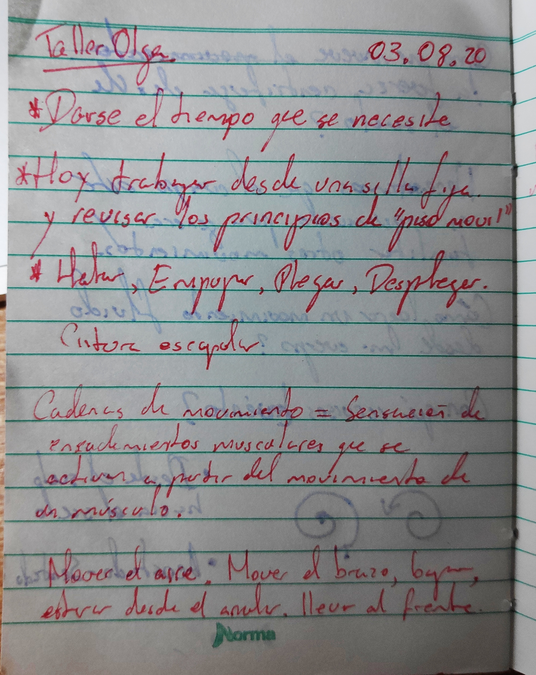 Taller Olga. 03.08.20
* Darse el tiempo que se necesite
* Hoy trabajar desde una silla fija
y revisar los principios de "piso movil"
* Halar, Empujar, Plegar, Desplegar.
Cintura escapular.
Cadenas de movimiento = Sensación de
encadenamientos musculares que se
activan a partir del movimiento de
un músculo.
Mover el aire. Mover el brazo, bajar,
estirar desde el anular. llevar al frente.
Norma